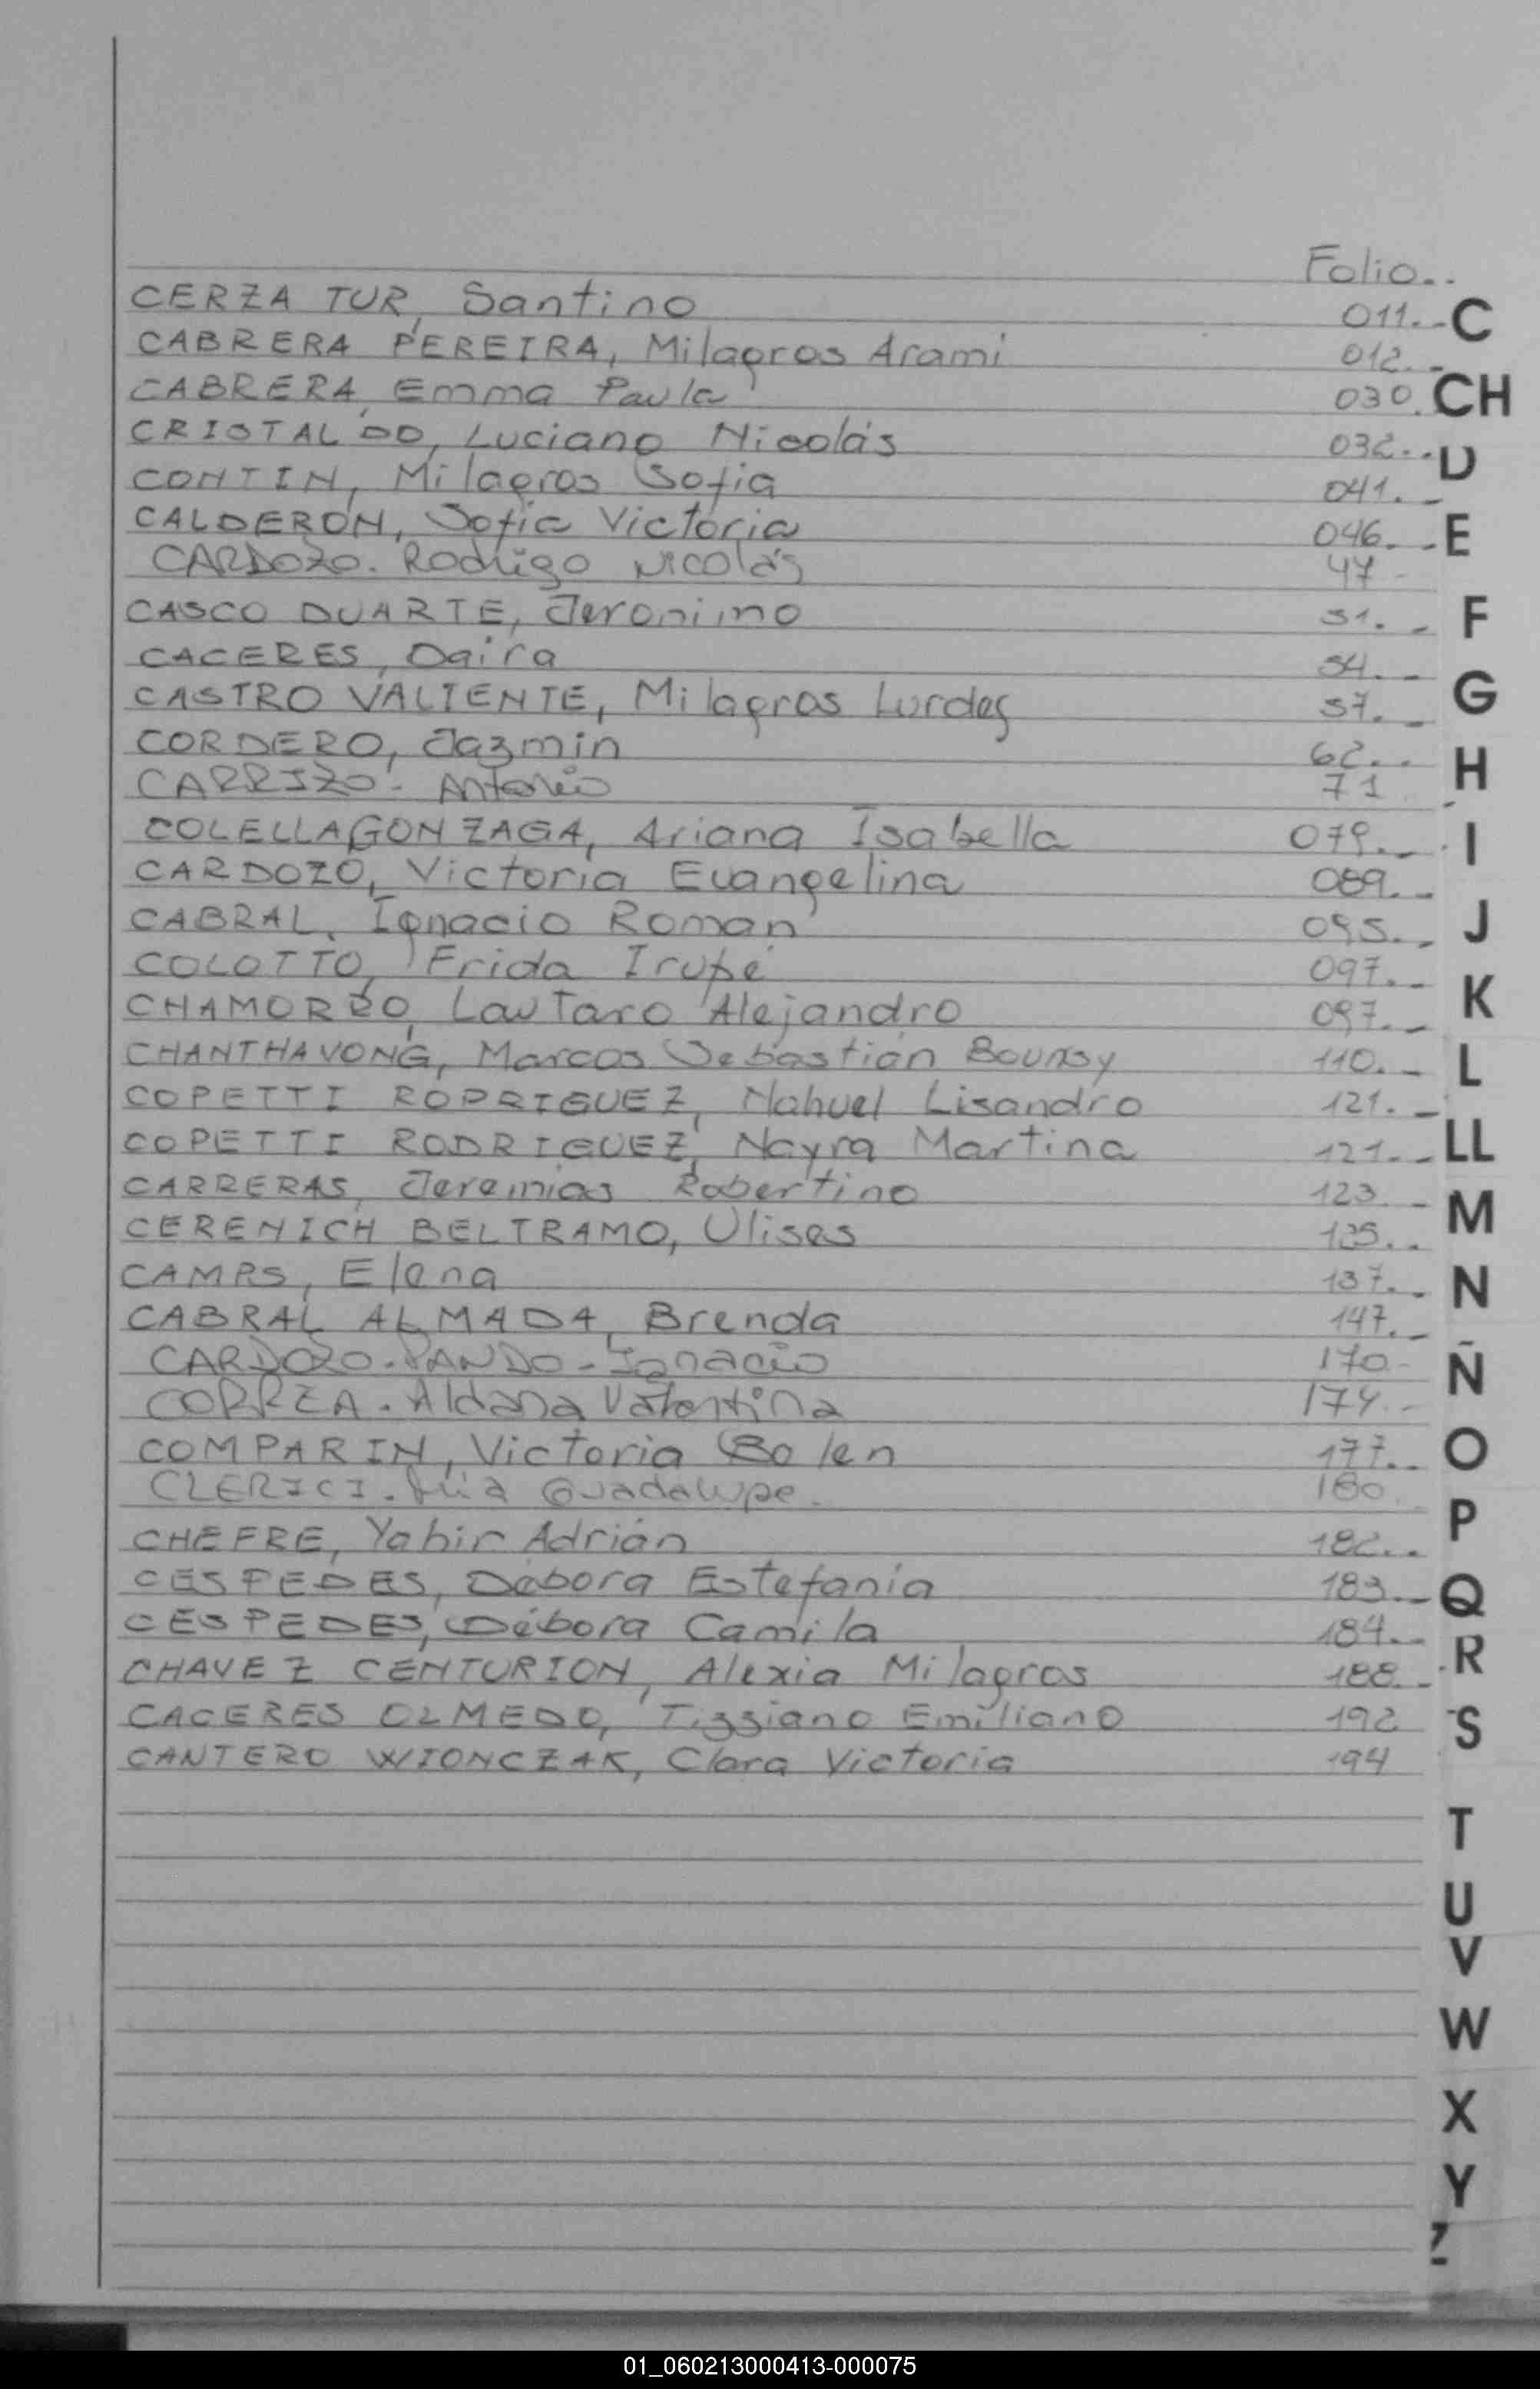 Folio..
CERZA TUR, Santino 011.-
CABRERA PEREIRA, Milagros Arami 012.-
CABRERA, Emma Paula 030.
CRISTALDO, Luciano Nicolás 032..
CONTIN, Milagros Sofia 041.-
CALDERÓN, Sofia Victoria 046.-
CARDOZO. Rodrigo Nicolás 47-
CASCO DUARTE, Jeronimo 51.-
CACERES, Daira 54.-
CASTRO VALIENTE, Milagros Lurdes 57.-
CORDERO, Jazmin 62..
CARRIZO- Antonio 71
COLELLA GONZAGA, Ariana Isabella 079.-
CARDOZO, Victoria Evangelina 089.-
CABRAL, Ignacio Roman 095.-
COLOTTO, Frida Irupé 097.-
CHAMORRO, Lautaro Alejandro 097.-
CHANTHAVONG, Marcos Sebastián Bounsy 110.-
COPETTI RODRIGUEZ, Nahuel Lisandro 121.-
COPETTI RODRIGUEZ, Nayra Martina 121.-
CARRERAS, Jeremias Robertino 123.-
CERENICH BELTRAMO, Ulises 135..
CAMPS, Elena 137.-
CABRAL ALMADA, Brenda 147.-
CARDOZO-PANDO-Ignacio 170-
CORREA. Aldana Valentina 174.-
COMPARIN, Victoria Belen 177..
CLERICI. Guadalupe. 180
CHEFRE, Yahir Adrián 182..
CESPEDES, Débora Estefanía 183.-
CESPEDES, Débora Camila 184.-
CHAVEZ CENTURION, Alexia Milagros 188.-
CACERES OLMEDO, Tizziano Emiliano 192
CANTERO WIONCZAK, Clara Victoria 194
C
CH
D
E
F
G
H
I
J
K
L
LL
M
N
Ñ
O
P
Q
R
S
T
U
V
W
X
Y
Z
01_060213000413-000075